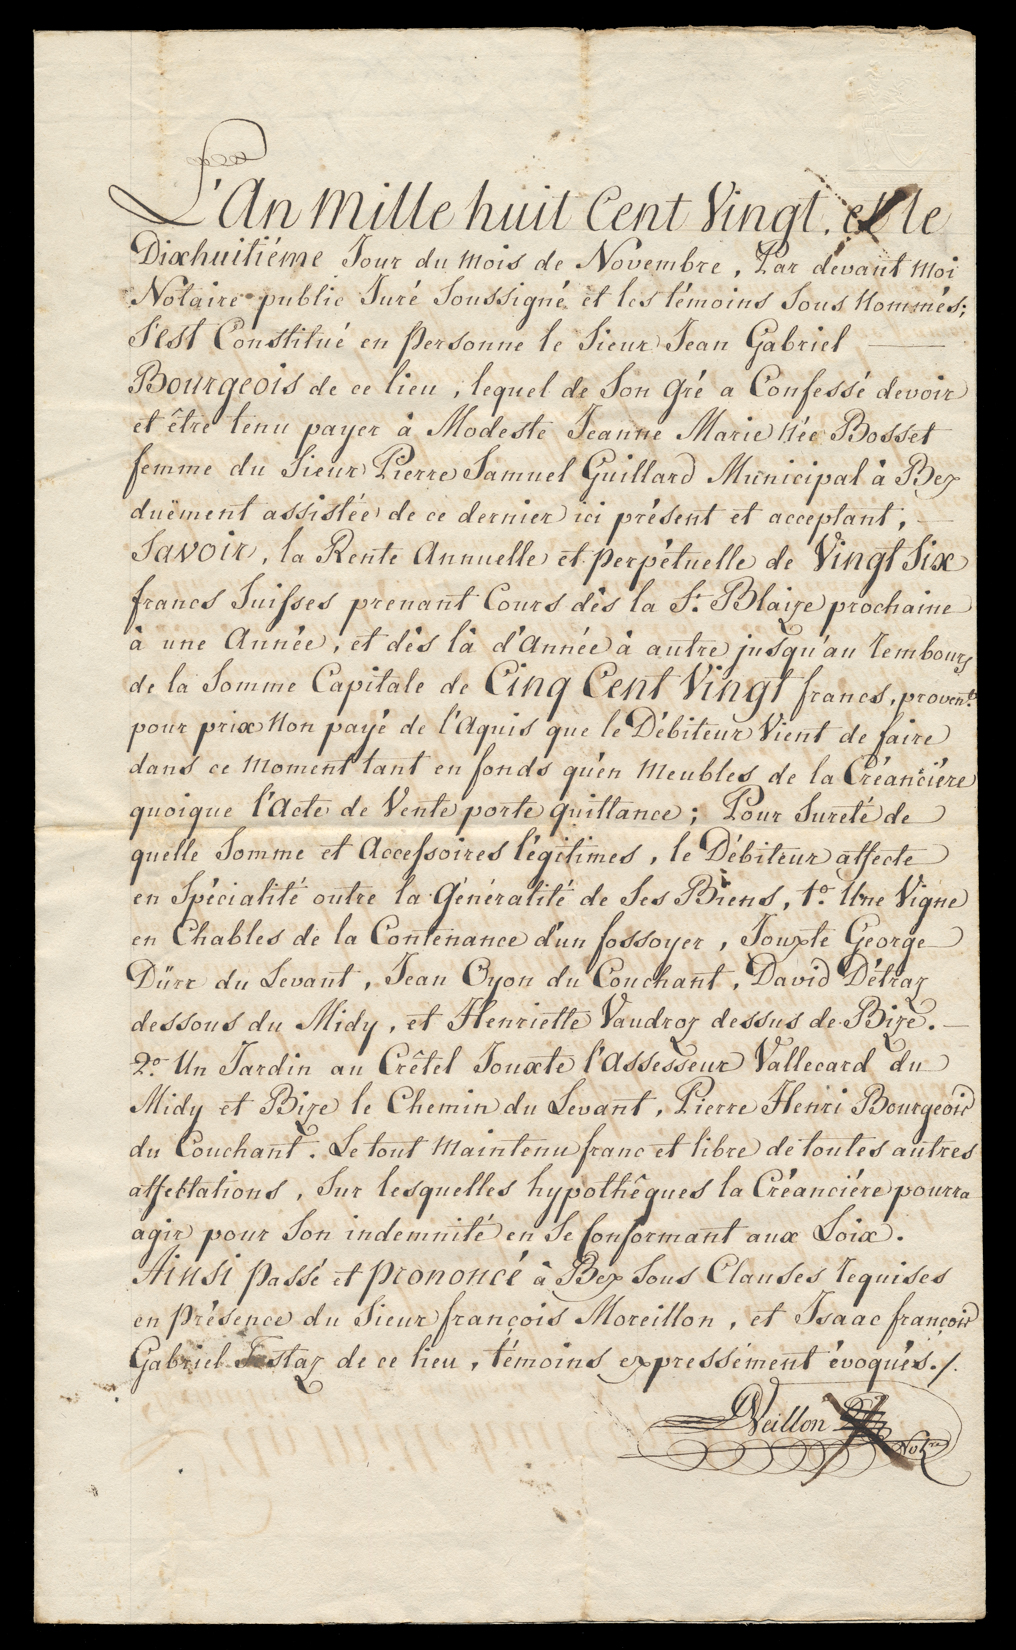 L'An Mille huit Cent Vingt, et le
Dixhuitiéme Jour du Mois de Novembre, Par devant Moi
Notaire public Juré Soussigné et les témoins Sous Nommés;
S'est Constitué en personne le Sieur Jean Gabriel
Bourgeois de ce lieu, lequel de Son gré a Confessé devoir
et être tenu payer à Modeste Jeanne Marie Née Bosset
femme du Sieur Pierre Samuel Guillard Municipal à Bex
duëment assistée de ce dernier ici présent et acceptant,
Savoir, la Rente Annuelle et perpétuelle de Vingt Six
francs Suisses prenant Cours dès la St. Blaize prochaine
à une Année, et dès là d'Année à autre jusqu'au rembours
de la Somme Capitale de Cinq Cent Vingt francs, provent.
pour prix Non payé de l'Aquis que le Débiteur Vient de faire
dans ce Moment tant en fonds qu'en Meubles de la Créanciére
quoique l'Acte de Vente porte quittance; Pour Sureté de
quelle Somme et Accessoires légitimes, le Débiteur affecte
en Spécialité outre la Généralité de Ses Biens, 1o. Une Vigne
en Chables de la Contenance d'un fossoyer, Jouxte George
Dürr du Levant, Jean Oyon du Couchant, David Détraz
dessous du Midy, et Henriette Vaudroz dessus de Bize.
2o. Un Jardin au Crêtel Jouxte l'Assesseur Vallecard du
Midy et Bize le Chemin du Levant, Pierre Henri Bourgeois
du Couchant. Le tout Maintenu franc et libre de toutes autres
affectations, Sur lesquelles hypothêques la Créanciére pourra
agir pour Son indemnité en Se Conformant aux Loix.
Ainsi passé et prononcé à Bex Sous Clauses requises
en présence du Sieur françois Moreillon, et Isaac françois
Gabriel Testaz de ce lieu, témoins expressément évoqués./.
Veillon
Notre